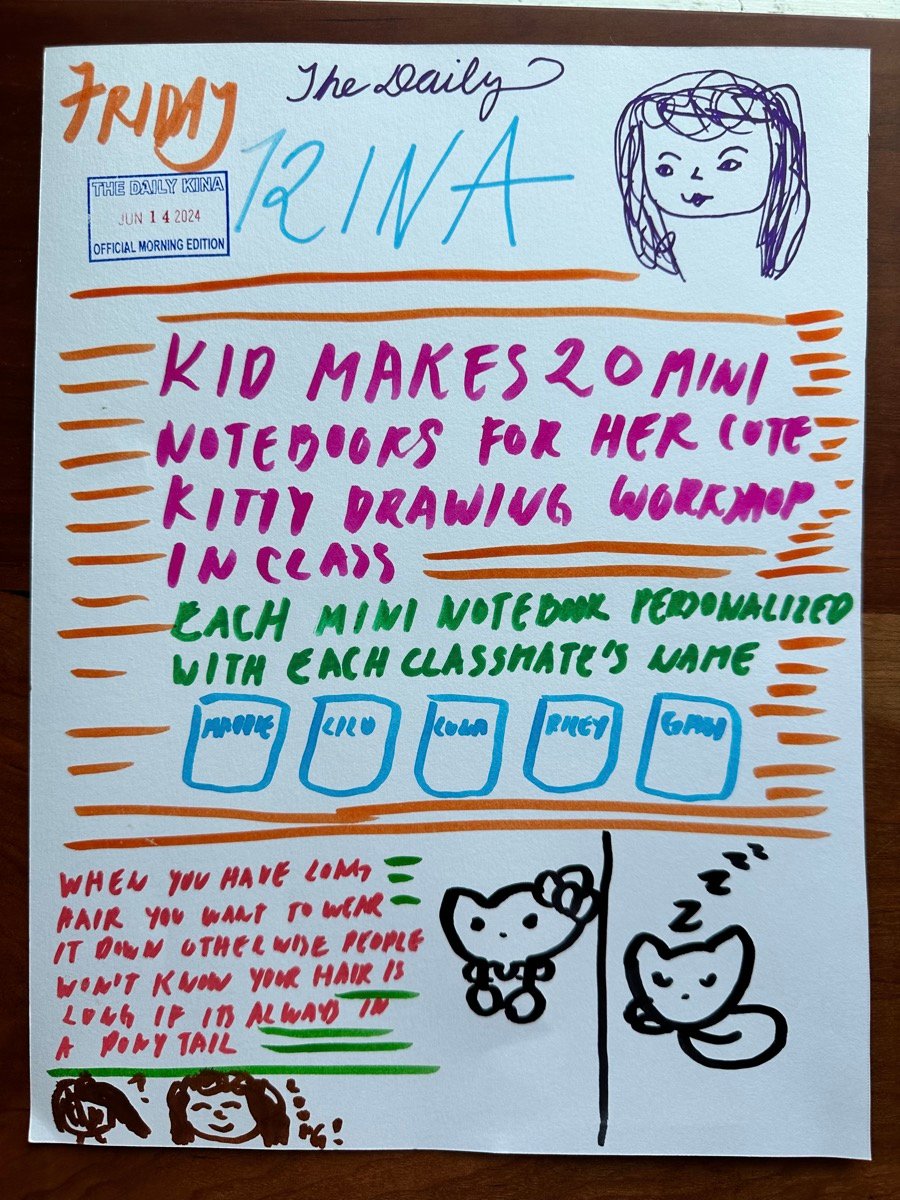 FRIDAY
The Daily
KINA
THE DAILY KINA
JUN 14 2024
OFFICIAL MORNING EDITION
KID MAKES 20 MINI
NOTEBOOKS FOR HER CUTE
KITTY DRAWING WORKSHOP
IN CLASS
EACH MINI NOTEBOOK PERSONALIZED
WITH EACH CLASSMATE'S NAME
LILU
RILEY
WHEN YOU HAVE LONG
HAIR YOU WANT TO WEAR
IT DOWN OTHERWISE PEOPLE
WON'T KNOW YOUR HAIR IS
LONG IF ITS ALWAYS IN
A PONY TAIL
Z Z Z Z Z